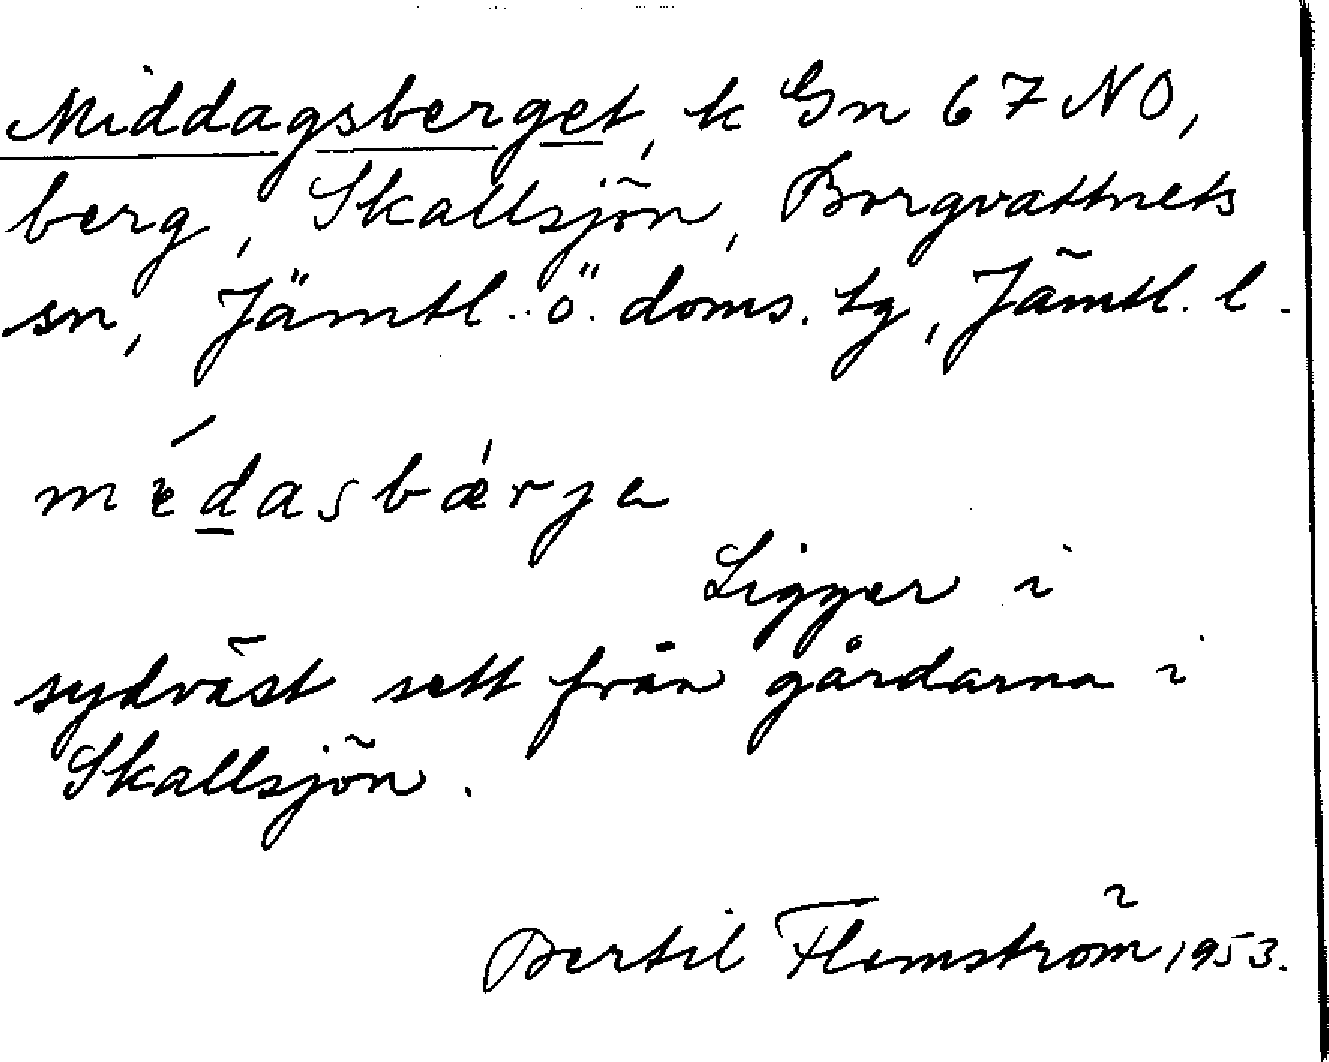 Middagsberget, k Gn 67 NO,
berg, Skallsjön, Borgvattnets
sn, Jämtl. ö. doms. tg, Jämtl. l.
médasbǽrje
Ligger i
sydväst sett från gårdarna i
Skallsjön.
Bertil Flemström 1953.